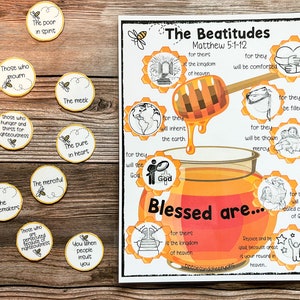 The poor
in spirit
Those who
mourn
The meek
Those who
hunger and
thirst for
righteousness
The pure in
heart
The merciful
The
Those who
are persecuted
because of
righteousness
You when
people
insult
you
The Beatitudes
Matthew 5:1-12
for theirs
is the kingdom
of heaven
for they
will be comforted
for they
will inherit
the earth
for they
will be filled
for they
will
for they
will
God
for they
will
Blessed are...
for theirs
is the kingdom
of heaven
Rejoice and be
glad, because
great is
your reward in
heaven.